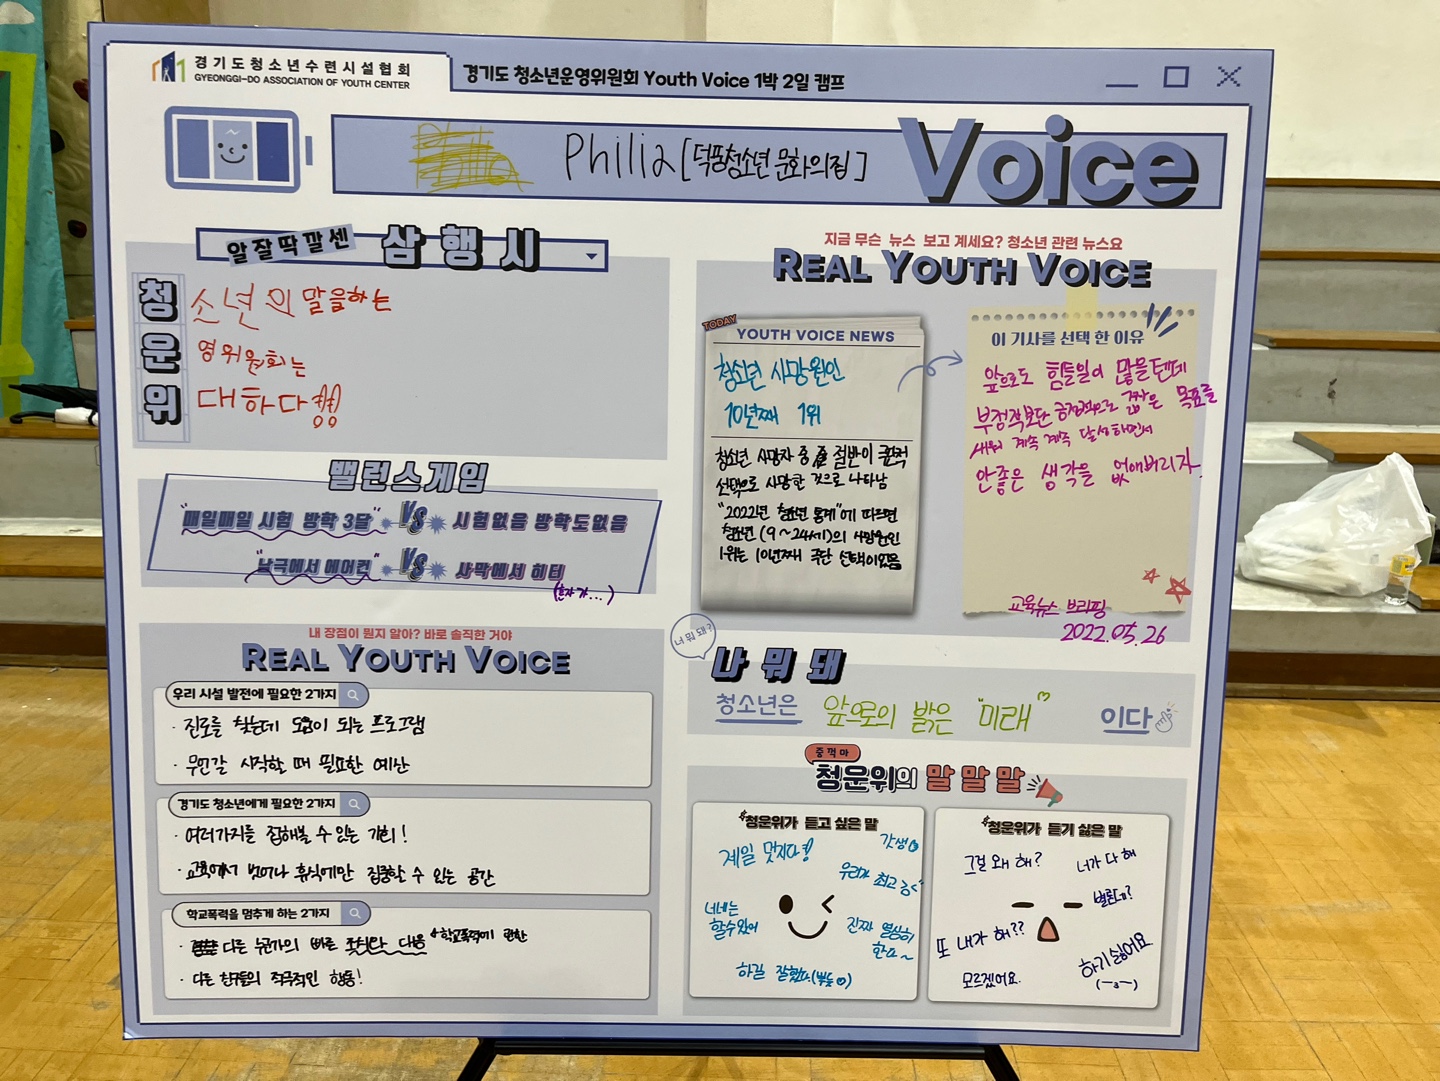 경기도청소년수련시설협회
GYEONGGI-DO ASSOCIATION OF YOUTH CENTER
경기도 청소년운영위원회 Youth Voice 1박 2일 캠프
Philia [덕풍청소년 문화의집]
Voice
알잘딱깔센 삼행시
청 소년의 말을하는
운 영위원회는
위 대하다
밸런스게임
"매일매일 시험 방학 3달" VS 시험없음 방학도없음
"남극에서 에어컨" VS 사막에서 히터
(혼자가...)
내 장점이 뭔지 알아? 바로 솔직한 거야
REAL YOUTH VOICE
우리 시설 발전에 필요한 2가지
· 진로를 찾는데 도움이 되는 프로그램
· 무언갈 시작할 때 필요한 예산
경기도 청소년에게 필요한 2가지
· 여러가지를 접해볼 수 있는 기회!
· 교육에서 벗어나 휴식에만 집중할 수 있는 공간
학교폭력을 멈추게 하는 2가지
· 다른 누군가의 빠른 대응 학교폭력에 관한
· 다른 친구들의 적극적인 행동!
지금 무슨 뉴스 보고 계세요? 청소년 관련 뉴스요
REAL YOUTH VOICE
TODAY
YOUTH VOICE NEWS
청소년 사망원인
10년째 1위
청소년 사망자 중 절반이 극단적
선택으로 사망한 것으로 나타남
"2022년 청소년 통계"에 따르면
청소년 (9~24세)의 사망원인
1위는 10년째 극단 선택이었음
이 기사를 선택 한 이유
앞으로도 힘들일이 많을텐데
부정적보단 긍정적으로 짧은 목표를
세워 계속 계속 달성하면서
안좋은 생각을 없애버리자.
교육뉴스 브리핑
2022.05.26
너 뭐 돼?
나 뭐 돼
청소년은 앞으로의 밝은 "미래" 이다
중꺾마
청운위의 말말말
청운위가 듣고 싶은 말
제일 멋지다!
갓생
우리가 최고
너네는
할수있어
진짜 열심히
한다~
하길 잘했다.(뿌듯)
청운위가 듣기 싫은 말
그걸 왜 해?
너가 다 해
별론데?
또 내가 해??
모르겠어요.
하기싫어요